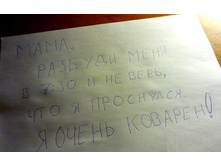 МАМА.
РАЗБУДИ МЕНЯ
В 7:30 И НЕ ВЕРЬ,
ЧТО Я ПРОСНУЛСЯ.
Я ОЧЕНЬ КОВАРЕН!